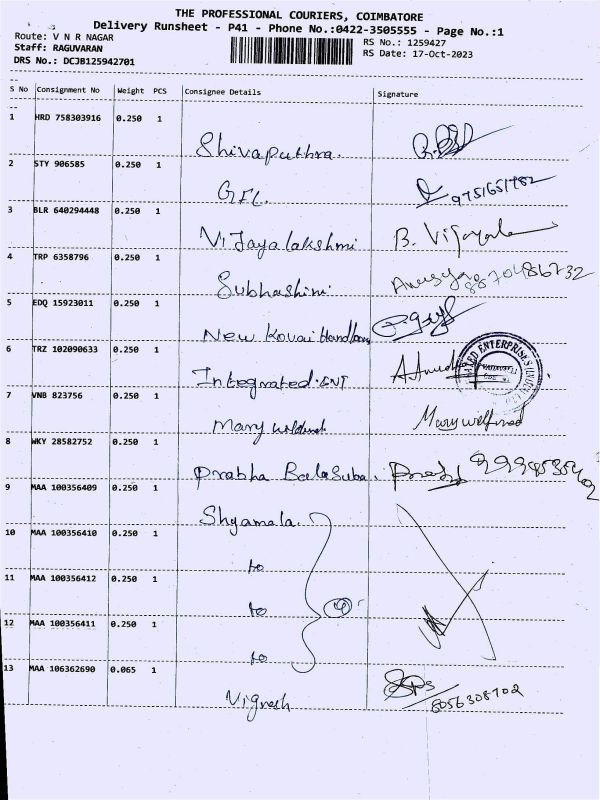 THE PROFESSIONAL COURIERS, COIMBATORE
Delivery Runsheet - P41 - Phone No.:0422-3505555 - Page No.:1
Route: V N R NAGAR
Staff: RAGUVARAN
DRS No.: DCJB125942701
RS No.: 1259427
RS Date: 17-Oct-2023
S No Consignment No Weight PCS Consignee Details Signature
1 HRD 758303916 0.250 1
Shivaputhra.
2 STY 906585 0.250 1
GFL. 9751651782
3 BLR 640294448 0.250 1
Vijayalakshmi B. Vijayala
4 TRP 6358796 0.250 1
Subhashini 8870486732
5 EDQ 15923011 0.250 1
New Kovai Handloom
6 TRZ 102090633 0.250 1
Integrated. ENT ENTERPRISES
7 VNB 823756 0.250 1
Mary Mary wilfred
8 WKY 28582752 0.250 1
Prabha Balasuba.
9 MAA 100356409 0.250 1
Shyamala.
10 MAA 100356410 0.250 1
to
11 MAA 100356412 0.250 1
to
12 MAA 100356411 0.250 1
to
13 MAA 106362690 0.065 1
Vignesh 8056308702